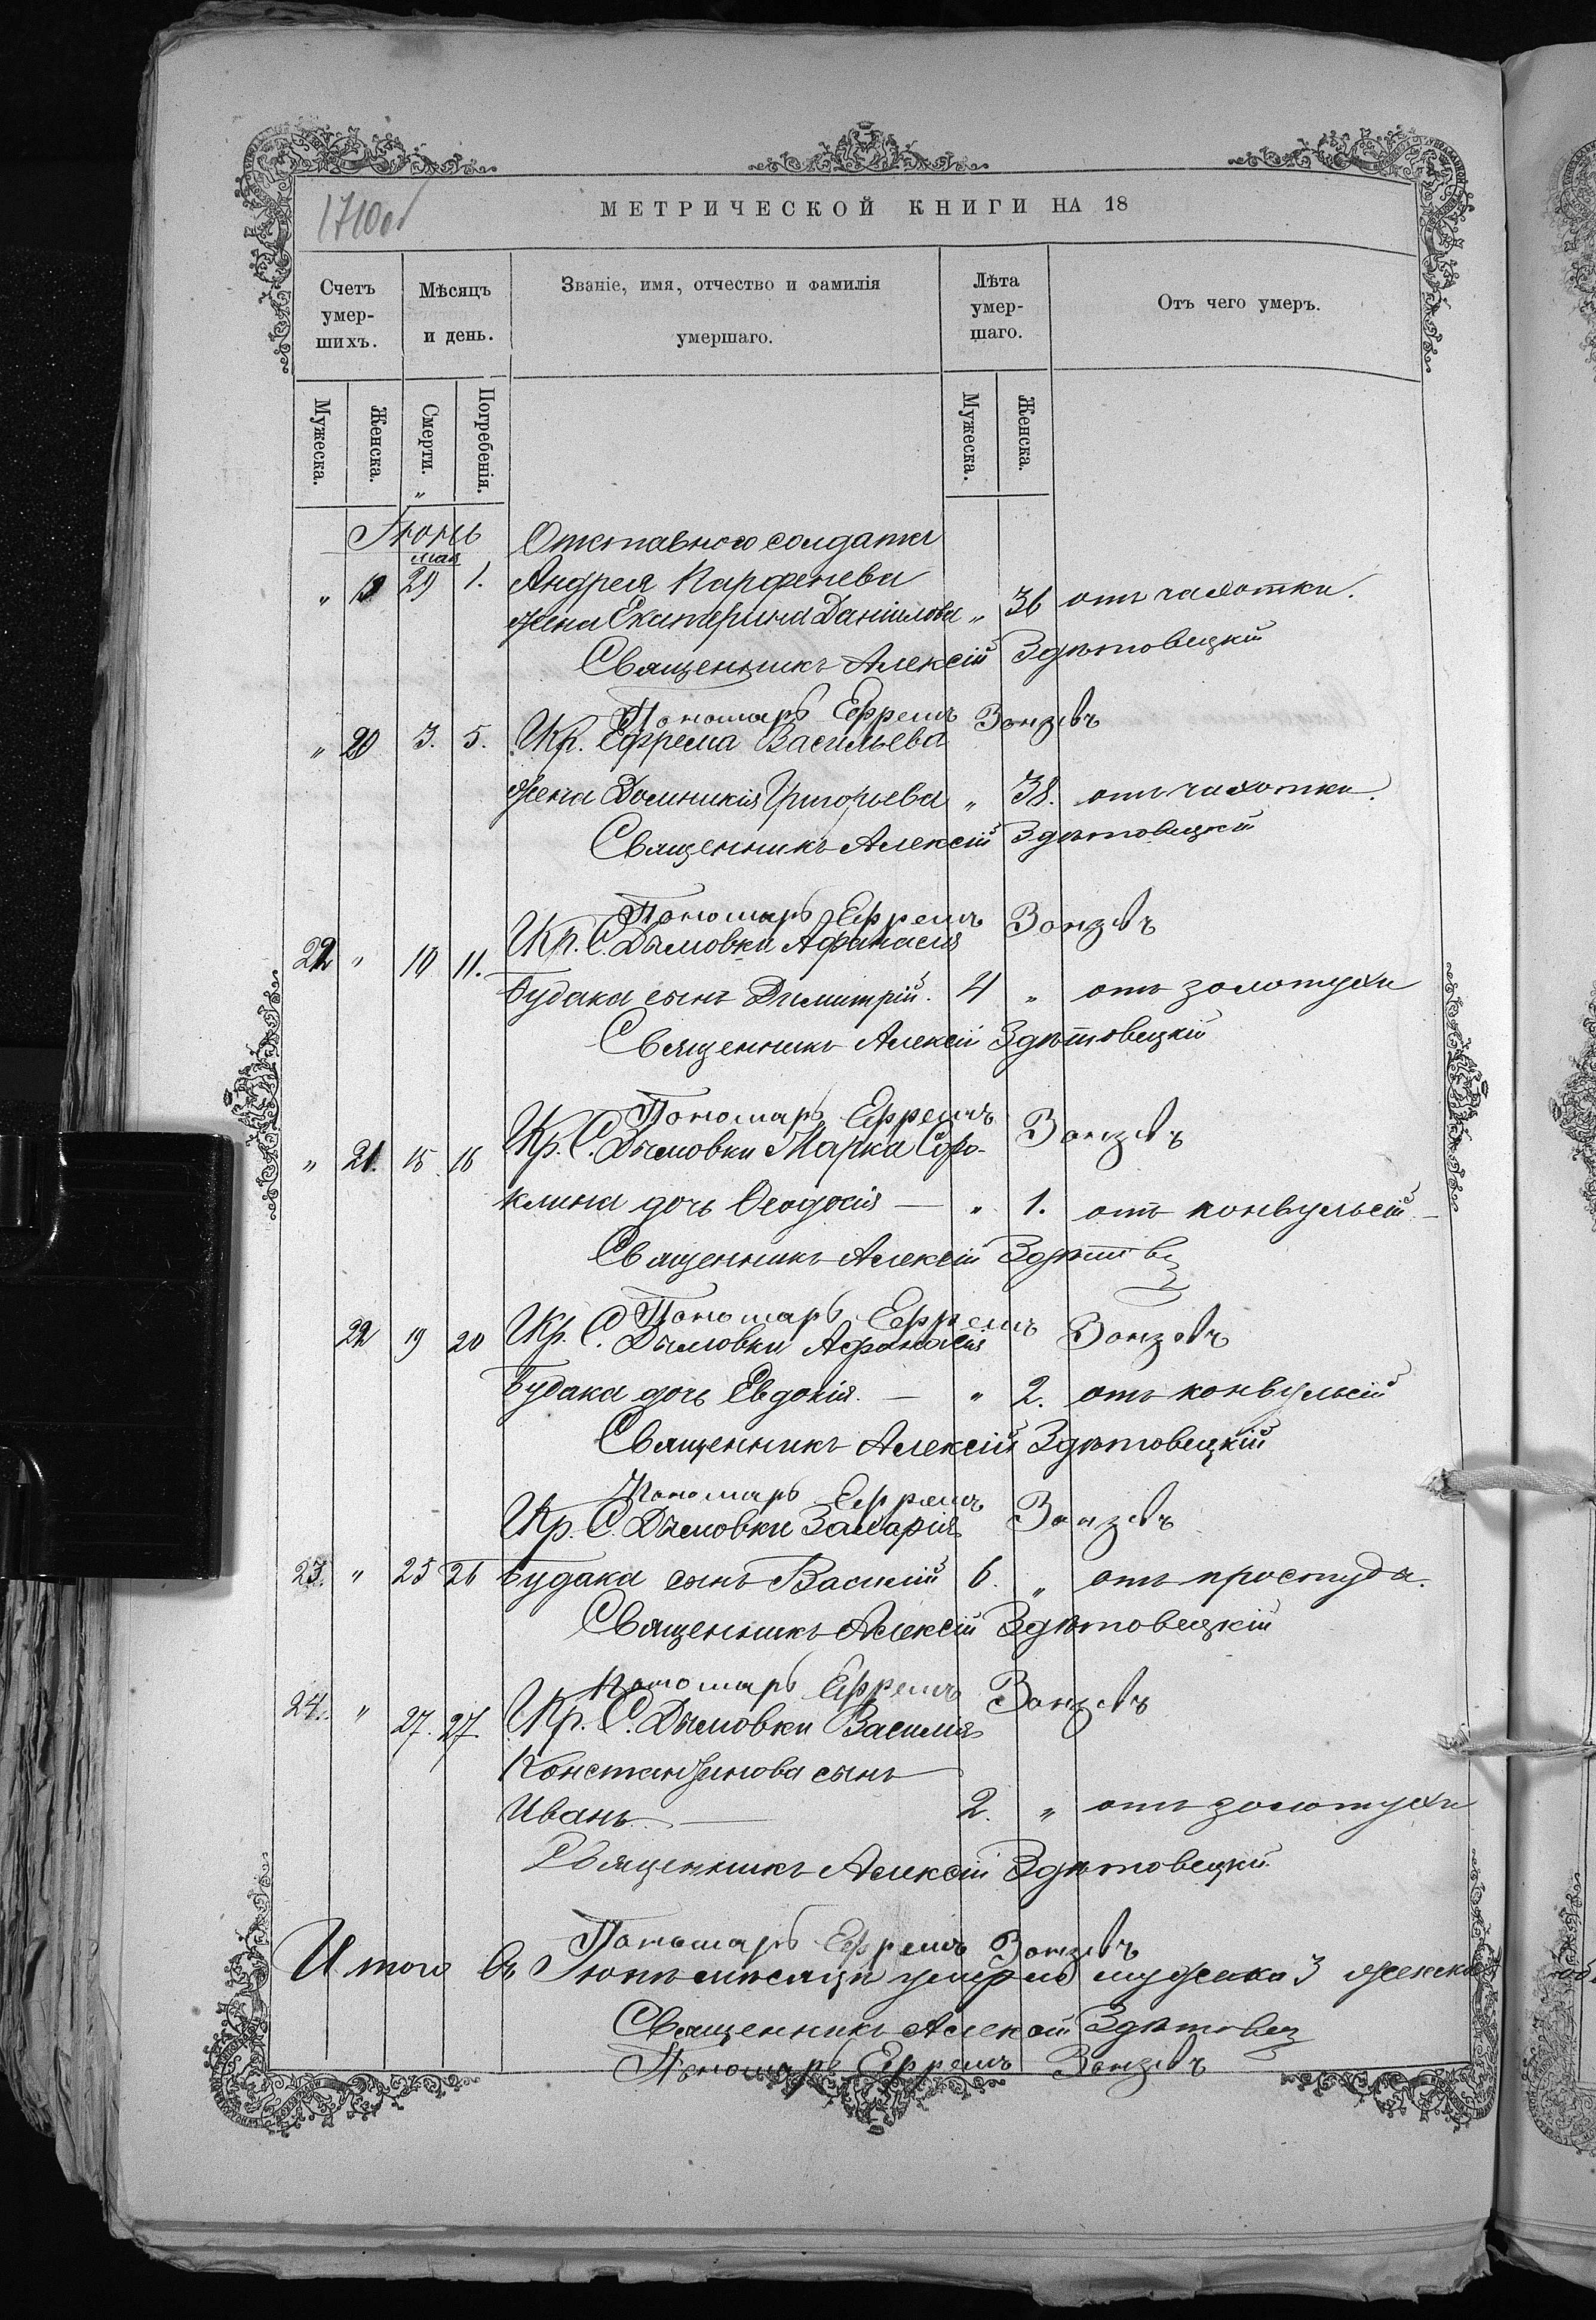 1710об
МЕТРИЧЕСКОЙ КНИГИ НА 18
Счетъ умер-шихъ.
Мѣсяцъ и день.
Званіе, имя, отчество и фамилія умершаго.
Лѣта умер-шаго.
Отъ чего умеръ.
Мужеска.
Женска.
Смерти.
Погребенія.
Мужеска.
Женска.
Іюнь
Отставного солдата
мая
" 19 29 1. Андрея Парфенева
жена Екатерина Даниилова " 36 отъ чахотки.
Священникъ Алексій Здѣтовецкій
Пономарь Ефремъ
" 20 3. 5. Кр. Ефрема Васильева
жена Домникія Григорьева " 38. отъ чахотки.
Священникъ Алексій Здѣтовецкій
Пономарь Ефремъ
22 " 10 11. Кр. С. Дымовки Афанасія
Будака сынъ Димитрій. 4 " отъ золотухи
Священникъ Алексій Здѣтовецкій
Пономарь Ефремъ
" 21. 15 16 Кр. С. Дымовки Марка Соро-
клина дочь Ѳеодосія — " 1. отъ конвульсій
Священникъ Алексій
Пономарь Ефремъ
22 19 20 Кр. С. Дымовки Афанасія
Будака дочь Евдокія. — " 2. отъ конвульсій
Священникъ Алексій Здѣтовецкій
Пономарь Ефремъ
Кр. С. Дымовки Захарія
23. " 25 26 Будака сынъ Василій 6. " отъ простуда.
Священникъ Алексій Здѣтовецкій
Пономарь Ефремъ
24. " 27. 27. Кр. С. Дымовки Василія
Константинова сынъ
Иванъ. — 2. " отъ золотухи
Священникъ Алексій Здѣтовецкій
Пономарь Ефремъ
Итого въ Іюнѣ мѣсяцѣ умерло мужска 3 женска
Священникъ Алексій
Пономарь Ефремъ